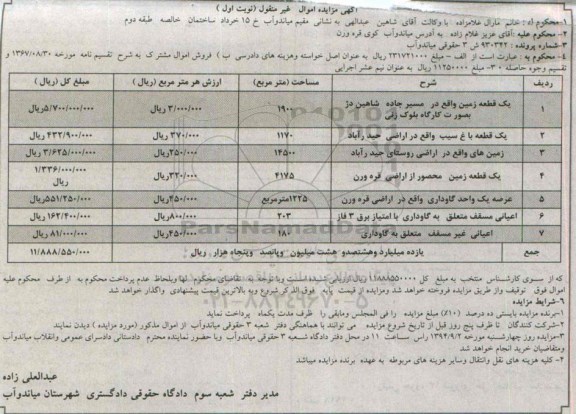 آگهی مزایده اموال غیر منقول (نوبت اول)
۱-محکوم له : خانم مارال غلامزاده با وکالت آقای شاهین عبدالهی به نشانی مقیم میاندوآب خ ۱۵ خرداد ساختمان خالصه طبقه دوم
۲- محکوم علیه :آقای عزیز غلام زاده به آدرس میاندوآب کوی قره ورن
۳-شماره پرونده : ۹۳۰۳۴۲ ش ۳ حقوقی میاندوآب
۴- محکوم به : عبارت است از الف - مبلغ ۲۳۱۷۲۱۰۰۰ ریال به عنوان اصل خواسته وهزینه های دادرسی ب ) فروش اموال مشترک به شرح تقسیم نامه مورخه ۱۳۶۷/۰۸/۳۰ و تقسیم وجوه حاصله ۳۰- مبلغ ۱۱۲۵۰۰۰۰ ریال به عنوان نیم عشر اجرایی
ردیف شرح مساحت (متر مربع) ارزش هر متر مربع (ریال) مبلغ کل (ریال )
۱ یک قطعه زمین واقع در مسیر جاده شاهین دژ بصورت کارگاه بلوک زنی ۱۹۰۰ ۳/۰۰۰/۰۰۰ریال ۵/۷۰۰/۰۰۰/۰۰۰ریال
۲ یک قطعه باغ سیب واقع در اراضی حیدرآباد ۱۱۷۰ ۳۷۰/۰۰۰ ریال ۴۳۲/۹۰۰/۰۰۰ ریال
۳ زمین های واقع در اراضی روستای حیدرآباد ۱۴۵۰۰ ۲۵۰/۰۰۰ریال ۳/۶۲۵/۰۰۰/۰۰۰ ریال
۴ یک قطعه زمین محصور از اراضی قره ورن ۴۱۷۵ ۳۲۰/۰۰۰ریال ۱/۳۳۶/۰۰۰/۰۰۰ ریال
۵ عرصه یک واحد گاوداری واقع در اراضی قره ورن ۱۲۲۵مترمربع ۴۵۰/۰۰۰ریال ۵۵۱/۲۵۰/۰۰۰ریال
۶ اعیانی مسقف متعلق به گاوداری با امتیاز برق ۳ فاز ۲۰۳ ۸۰۰/۰۰۰ریال ۱۶۲/۴۰۰/۰۰۰ ریال
۷ اعیانی غیر مسقف متعلق به گاوداری ۱۸۰ ۴۵۰/۰۰۰ریال ۸۱/۰۰۰/۰۰۰ ریال
جمع یازده میلیارد وهشتصدو هشت میلیون وپانصد وپنجاه هزار ریال ۱۱/۸۸۸/۵۵۰/۰۰۰
که از سوی کارشناس منتخب به مبلغ کل ۱۱۸۸۸۵۵۰۰۰۰ ریال ارزیابی شده است وبا توجه به تقاضای محکوم لها وبلحاظ عدم پرداخت محکوم به از طرف محکوم علیه اموال فوق توقیف واز طریق مزایده فروخته خواهد شد ومزایده از قیمت پایه فوق الذکر شروع وبه بالاترین قیمت پیشنهادی واگذار خواهد شد
۶-شرایط مزایده
۱-برنده مزایده بایستی ده درصد (۱۰٪) مبلغ مزایده را فی المجلس ومابقی را ظرف مدت یکماه پرداخت نماید
۲-شرکت کنندگان تا ظرف پنج روز قبل از تاریخ شروع مزایده می توانند با هماهنگی دفتر شعبه ۳ حقوقی میاندوآب از اموال مذکور (مورد مزایده ) دیدن نمایند
۳-مزایده روز چهارشنبه مورخه ۱۳۹۴/۹/۲ راس ساعت ۱۱ در محل دفتر دادگاه شعبه ۳ حقوقی میاندوآب وبا حضور نماینده محترم دادستانی دادسرای عمومی وانقلاب میاندوآب ومتقاضیان خرید انجام خواهد شد
۴- کلیه هزینه های نقل وانتقال وسایر هزینه های مربوطه به عهده برنده مزایده میباشد
عبدالعلی زاده
مدیر دفتر شعبه سوم دادگاه حقوقی دادگستری شهرستان میاندوآب
ParsNamadData
۰۲۱-۸۸۳۴۹۶۷۰-۵